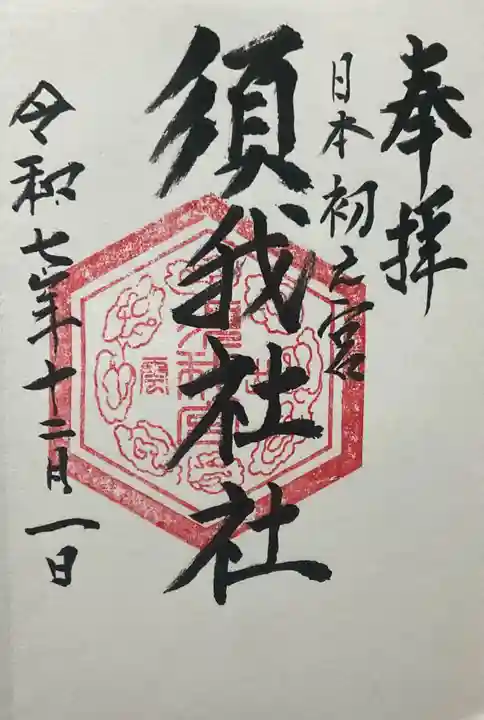 奉拝
日本初之宮
須我社社
令和七年十二月一日
雲
出